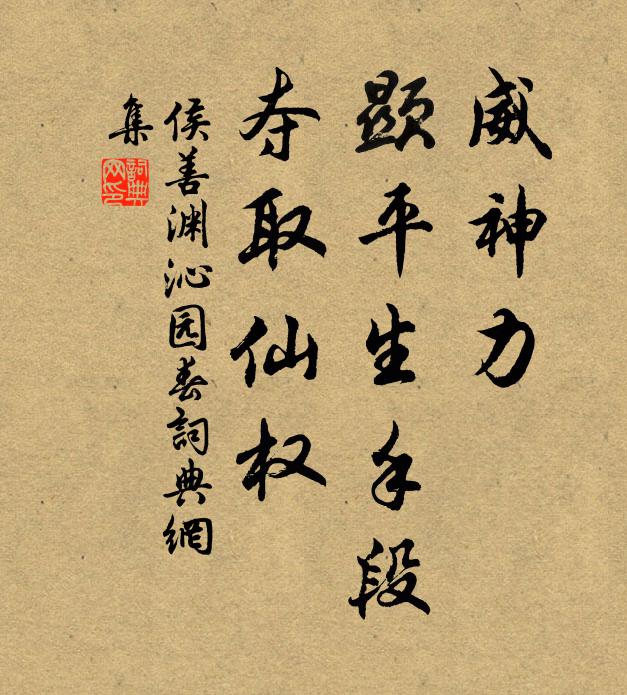 威神力
显平生手段
夺取仙权
侯善渊沁园春詞典網
集
詞典
网印